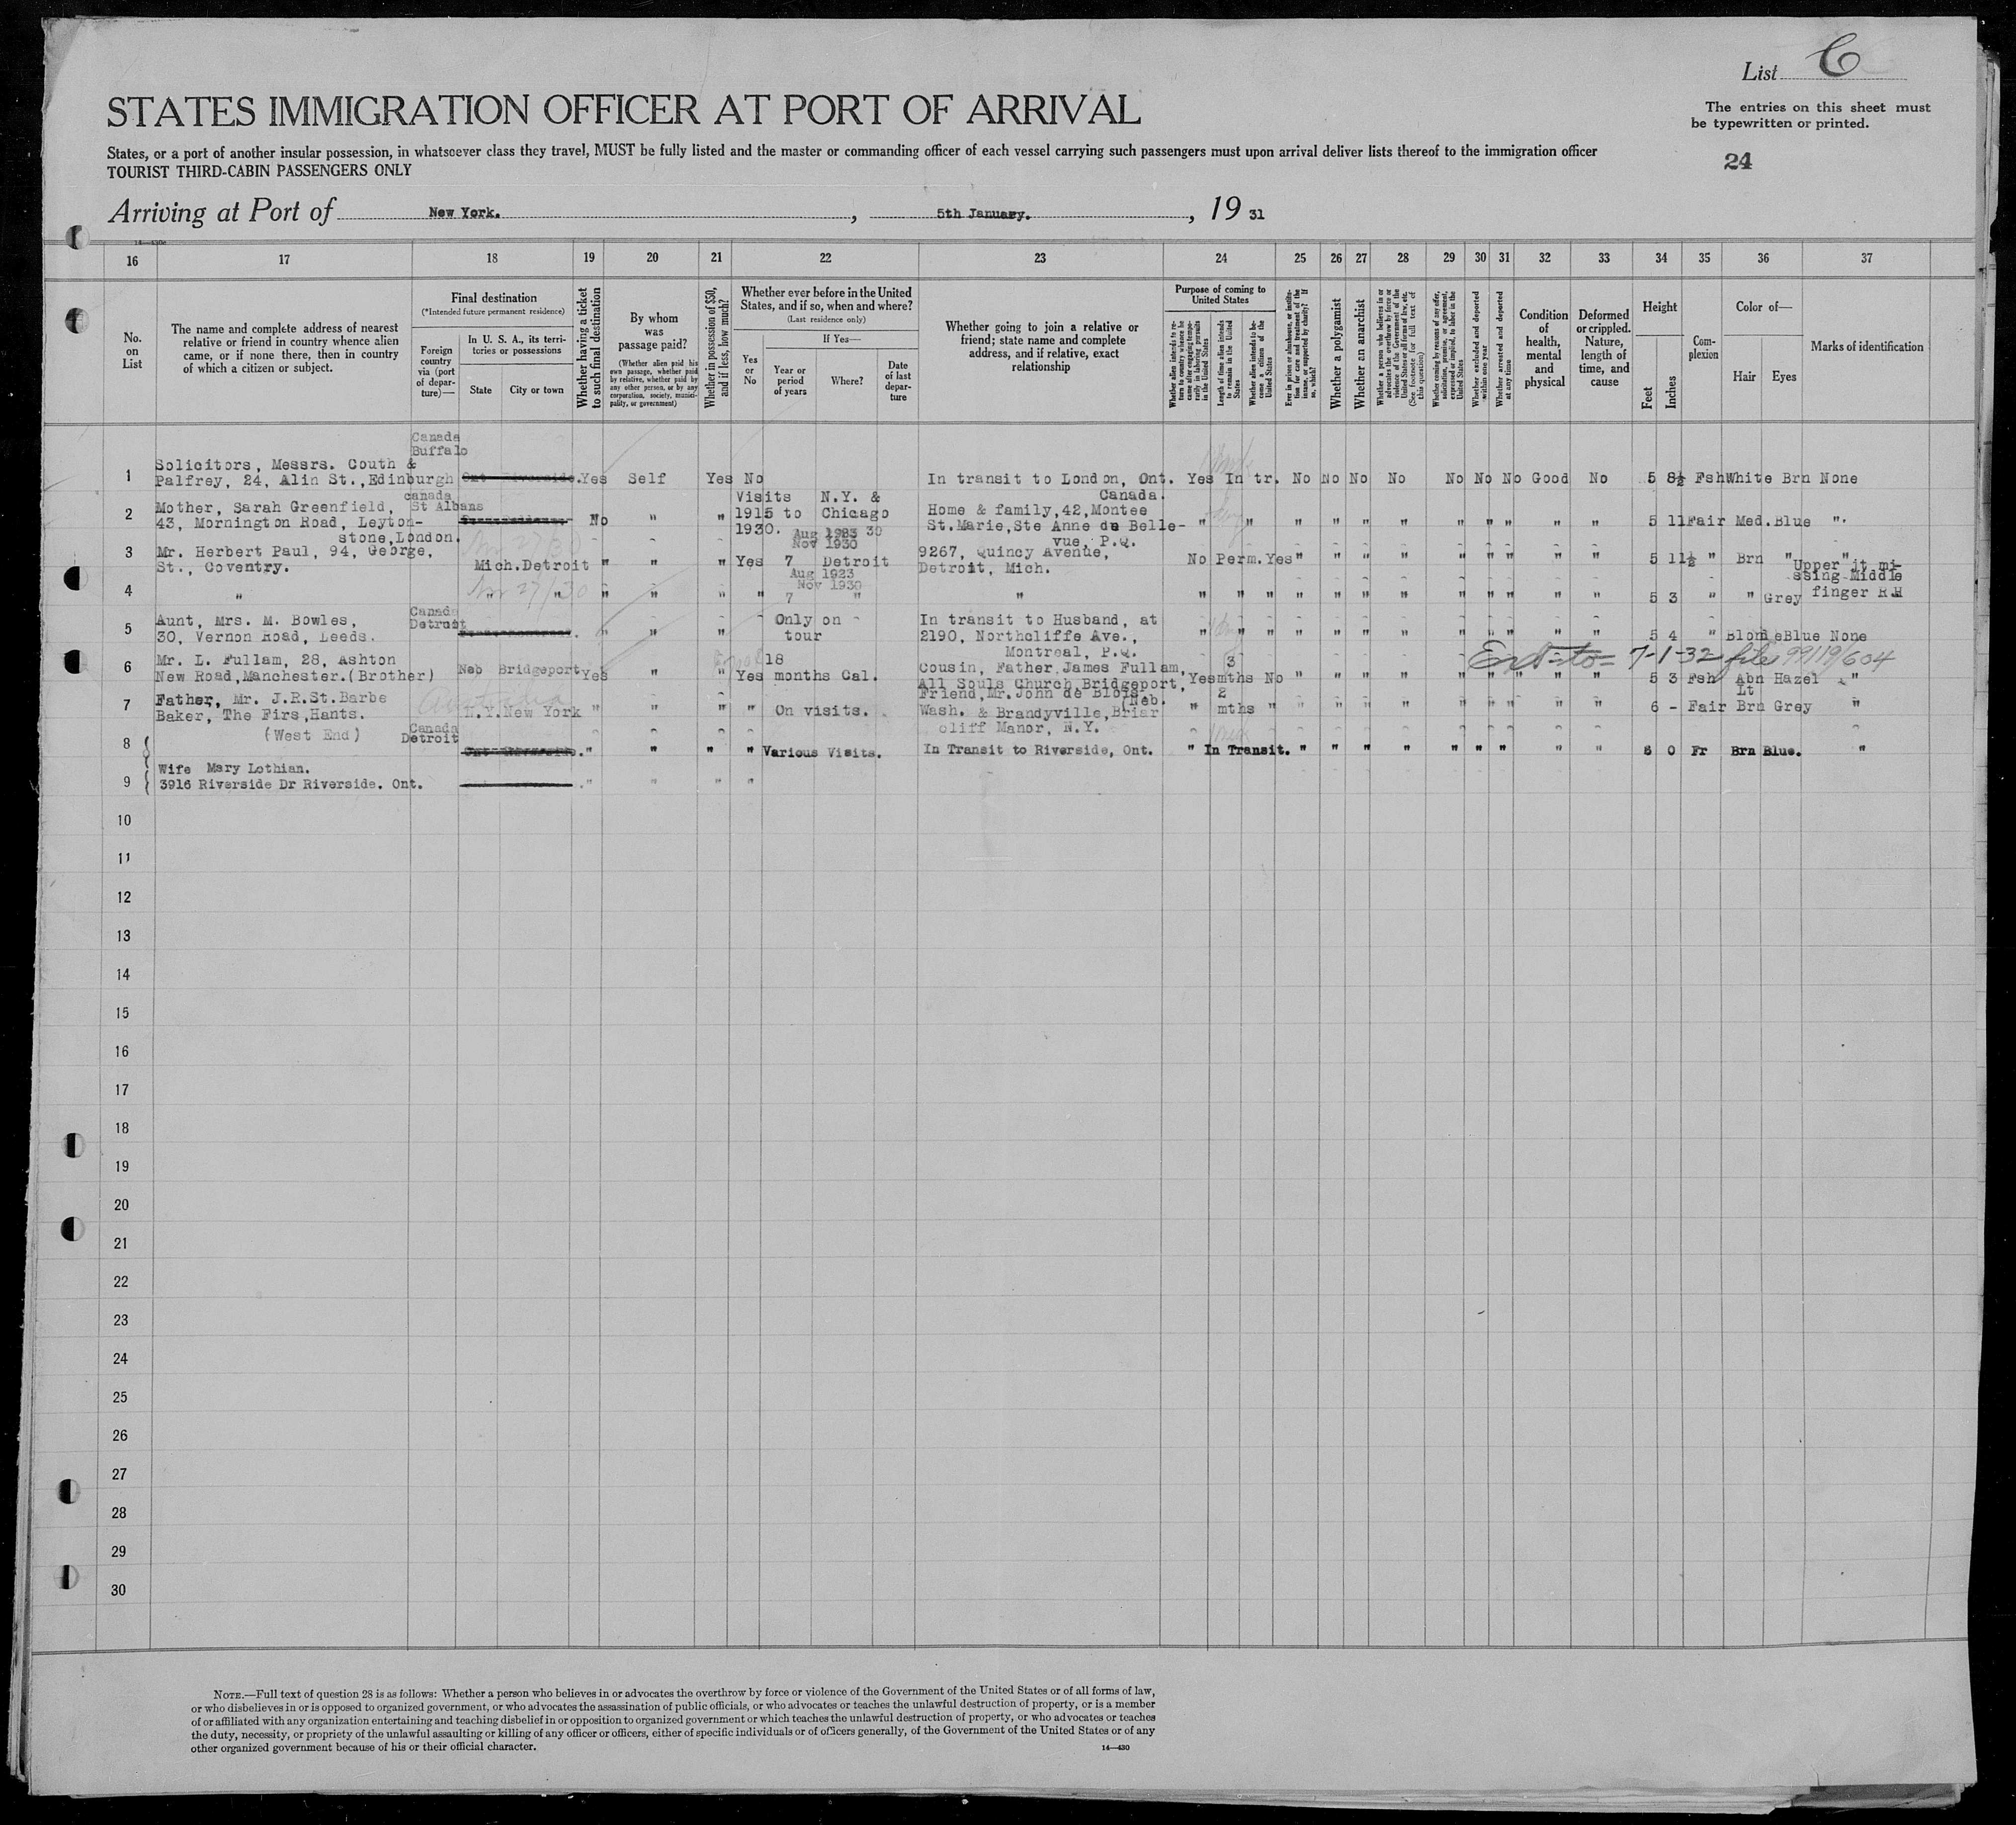 List C
STATES IMMIGRATION OFFICER AT PORT OF ARRIVAL
The entries on this sheet must
be typewritten or printed.
States, or a port of another insular possession, in whatsoever class they travel, MUST be fully listed and the master or commanding officer of each vessel carrying such passengers must upon arrival deliver lists thereof to the immigration officer
TOURIST THIRD-CABIN PASSENGERS ONLY
24
Arriving at Port of New York. , 5th January. , 19 31
16 17 18 19 20 21 22 23 24 25 26 27 28 29 30 31 32 33 34 35 36 37
No. on List
The name and complete address of nearest
relative or friend in country whence alien
came, or if none there, then in country
of which a citizen or subject.
Final destination
(*Intended future permanent residence)
Foreign country via (port of departure)—
In U. S. A., its territories or possessions
State City or town
Whether having a ticket to such final destination
By whom was passage paid?
(Whether alien paid his own passage, whether paid by relative, whether paid by any other person, or by any corporation, society, municipality, or government)
Whether in possession of $50, and if less, how much?
Whether ever before in the United
States, and if so, when and where?
(Last residence only)
Yes or No
If Yes—
Year or period of years
Where?
Date of last departure
Whether going to join a relative or
friend; state name and complete
address, and if relative, exact
relationship
Purpose of coming to United States
Whether alien intends to return to country whence he came after engaging temporarily in laboring pursuits in the United States
Length of time alien intends to remain in the United States
Whether alien intends to become a citizen of the United States
Ever in prison or almshouse, or institution for care and treatment of the insane, or supported by charity? If so, which?
Whether a polygamist
Whether an anarchist
Whether a person who believes in or advocates the overthrow by force or violence of the Government of the United States or all forms of law, etc. (See footnote for full text of this question)
Whether coming by reasons of any offer, solicitation, promise, or agreement, expressed or implied, to labor in the United States
Whether excluded and deported within one year
Whether arrested and deported at any time
Condition of health, mental and physical
Deformed or crippled. Nature, length of time, and cause
Height
Feet Inches
Complexion
Color of—
Hair Eyes
Marks of identification
Canada
Buffalo
Solicitors, Messrs. Couth &
1 Palfrey, 24, Alin St.,Edinburgh Yes Self Yes No In transit to London, Ont. Yes In tr. No No No No No No No Good No 5 8½ Fsh White Brn None
Canada.
canada
St Albans
Visits N.Y. &
2 Mother, Sarah Greenfield, 1915 to Chicago Home & family,42,Montee
43, Mornington Road, Leyton- No " " 1930. St.Marie,Ste Anne de Belle- " " " " " " " " " " " 5 11 Fair Med.Blue "
stone,London. Nov 1930 vue, P.Q.
3 Mr. Herbert Paul, 94, George, 9267, Quincy Avenue,
St., Coventry. Mich.Detroit " " " Yes 7 Detroit Detroit, Mich. No Perm.Yes " " " " " " " " " 5 11½ " Brn " "
Aug 1923
Nov 1930
Upper jt mi-
ssing Middle
finger R.H
4 " " " " " " " 7 " " " " " " " " " " " " " " 5 3 " " Grey
Canada
Detroit
5 Aunt, Mrs. M. Bowles, Only on In transit to Husband, at
30, Vernon Road, Leeds. " " " tour 2190, Northcliffe Ave., " " " " " " " " " " " " 5 4 " Blonde Blue None
Montreal, P.Q.
Ext to 7-1-32 file 99119/604
6 Mr. L. Fullam, 28, Ashton 18 Cousin, Father James Fullam, 3
New Road,Manchester.(Brother) Neb Bridgeport Yes " " Yes months Cal. All Souls Church Bridgeport, Yes mths No " " " " " " " " " 5 3 Fsh Abn Hazel "
(Neb.
7 Father, Mr. J.R.St.Barbe Friend,Mr.John de Blois, 2 Lt
Baker, The Firs,Hants. N.Y.New York " " " " On visits. Wash. & Brandyville,Briar " mths " " " " " " " " " " 6 - Fair Brn Grey "
(West End) cliff Manor, N.Y.
Canada
Detroit
8 " " " " Various Visits. In Transit to Riverside, Ont. " In Transit. " " " " " " " " " 5 0 Fr Brn Blue. "
Wife Mary Lothian.
9 3916 Riverside Dr Riverside. Ont. " " " "
10
11
12
13
14
15
16
17
18
19
20
21
22
23
24
25
26
27
28
29
30
NOTE.—Full text of question 28 is as follows: Whether a person who believes in or advocates the overthrow by force or violence of the Government of the United States or of all forms of law,
or who disbelieves in or is opposed to organized government, or who advocates the assassination of public officials, or who advocates or teaches the unlawful destruction of property, or is a member
of or affiliated with any organization entertaining and teaching disbelief in or opposition to organized government or which teaches the unlawful destruction of property, or who advocates or teaches
the duty, necessity, or propriety of the unlawful assaulting or killing of any officer or officers, either of specific individuals or of officers generally, of the Government of the United States or of any
other organized government because of his or their official character.
14—430